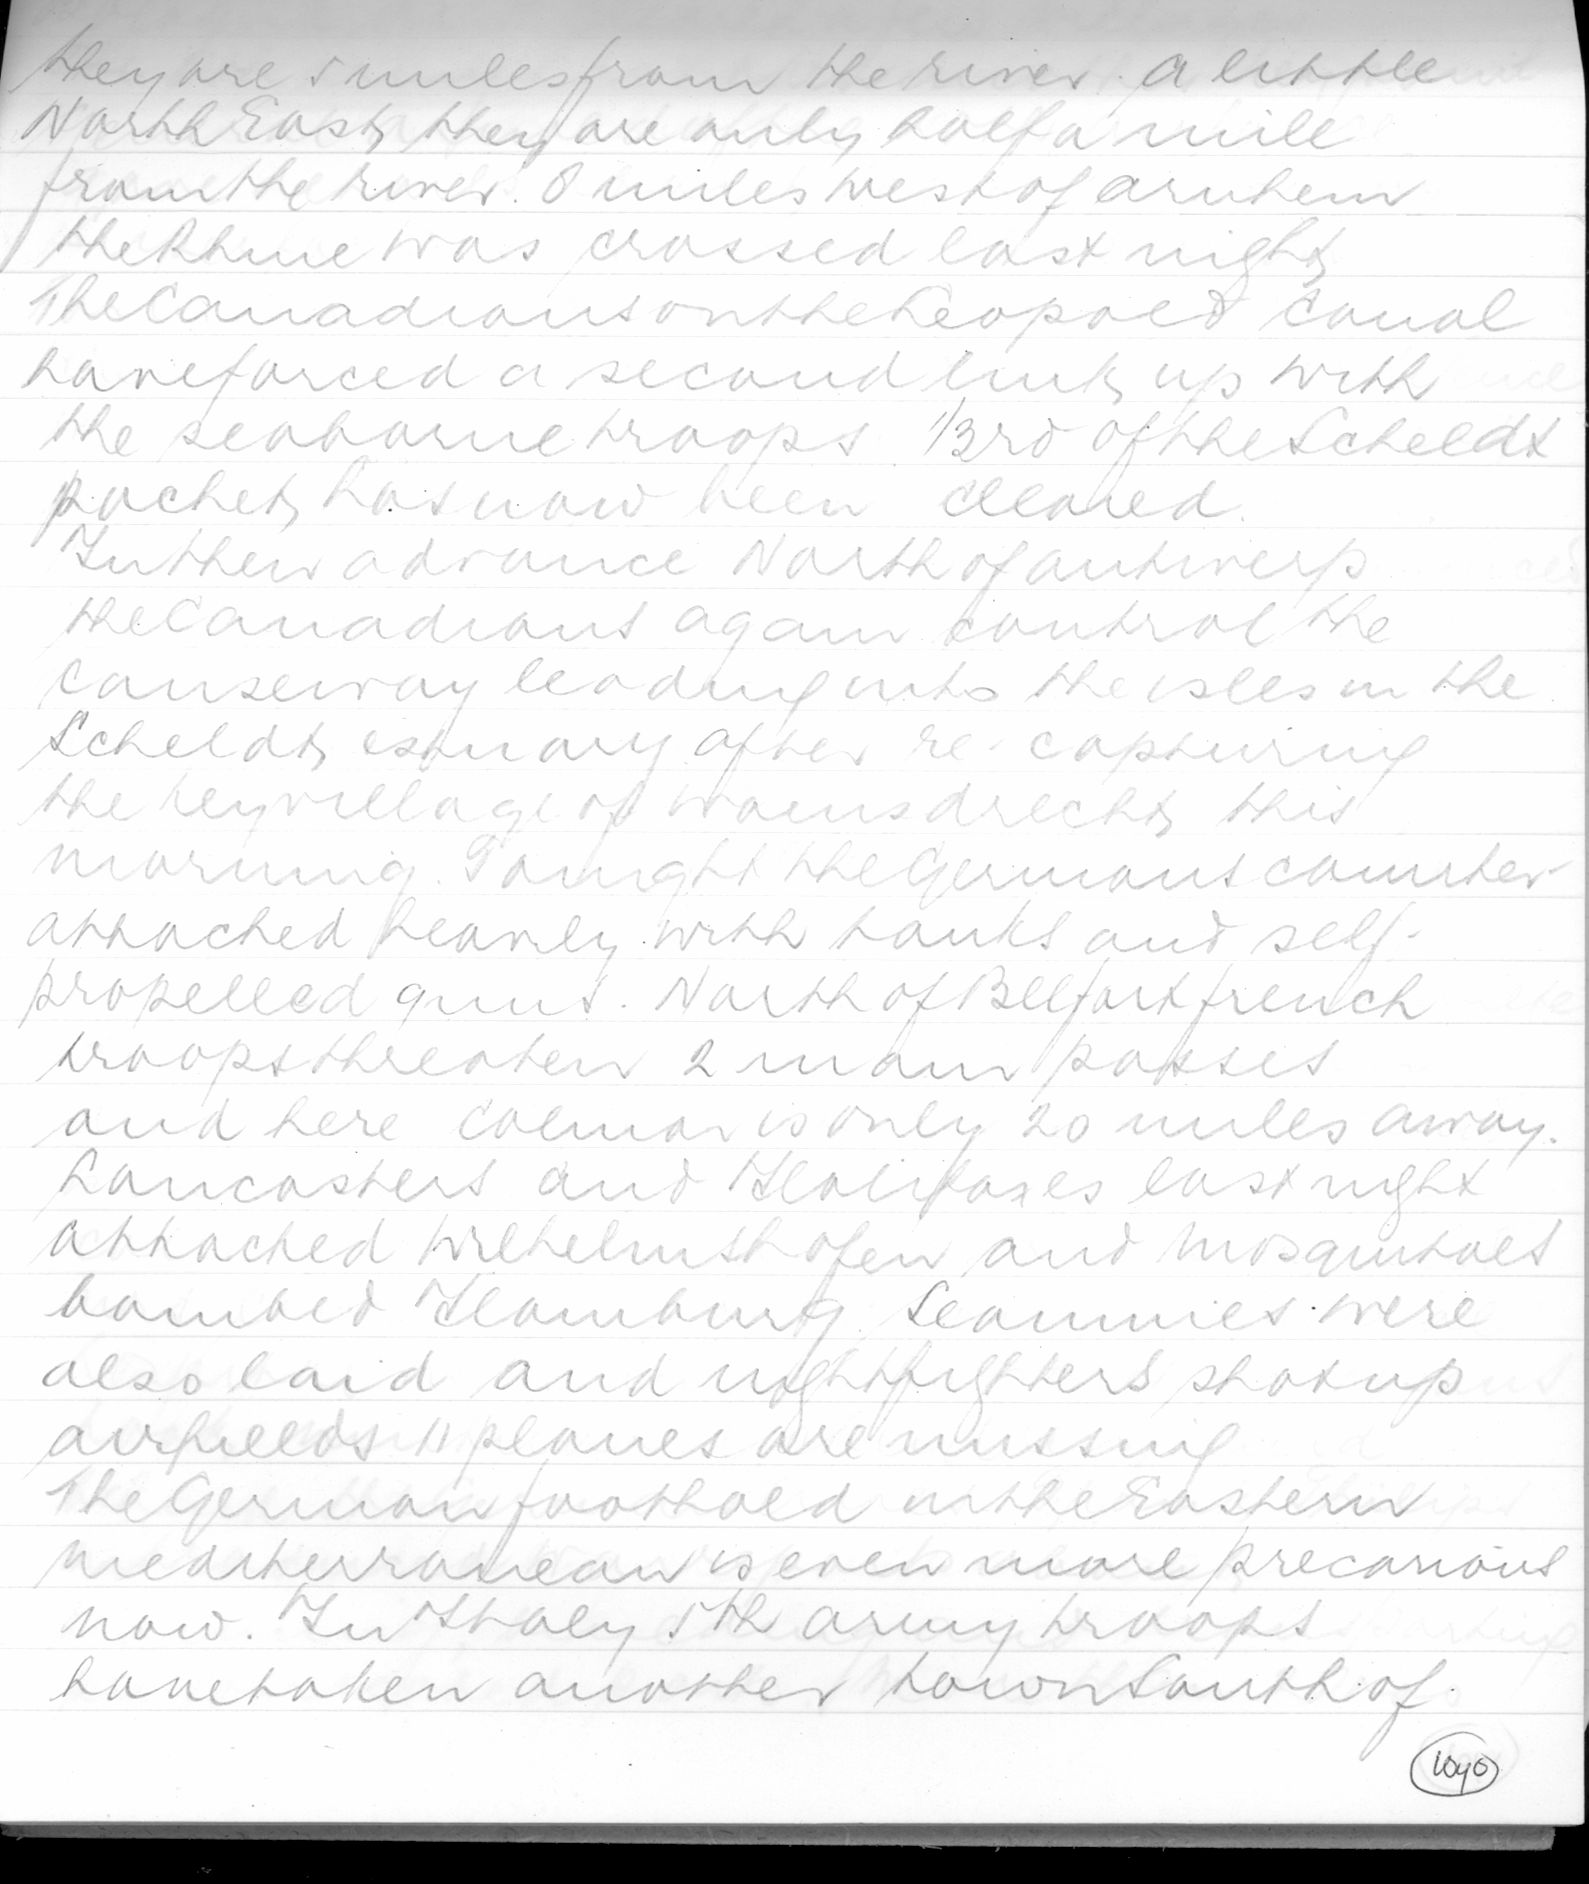 they are 5 miles from the river. A little
North East, they are only half a mile
from the river. 8 miles west of Arnhem
the Rhine was crossed last night,
The Canadians on the Leopold Canal
have forced a second link up with
the seaborne troops 1/3rd of the Scheldt
pocket, has now been cleared.
In their advance North of Antwerp
the Canadians again control the
causeway leading into the isles in the
Scheldt, estuary after re-capturing
the key village of Woensdrecht, this
morning. Tonight the Germans counter-
attacked heavily with tanks and self-
propelled guns. North of Belfort french
troops threaten 2 main passes
and here Colmar is only 20 miles away.
Lancasters and Halifaxes last night
attacked Wilhelmshafen and Mosquitoes
bombed Hamburg. Seamines were
also laid and nightfighters shot up
airfields 11 planes are missing
The German foothold in the Eastern
Mediterranean is even more precarious
now. In Italy 5th army troops
have taken another town South of